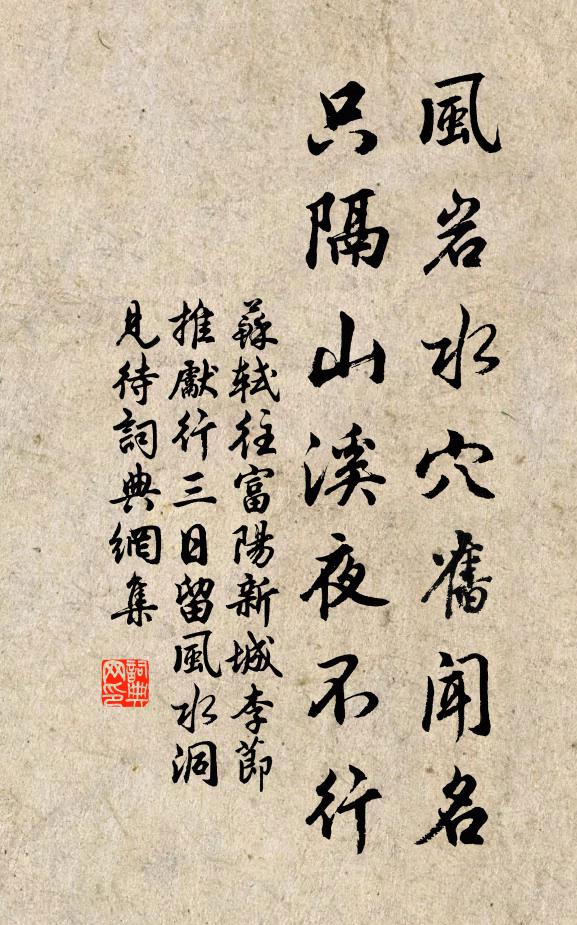 風岩水穴舊聞名
只隔山溪夜不行
蘇軾往富陽新城李節
推獻行三日留風水洞
見待詞典網集
詞典
网印